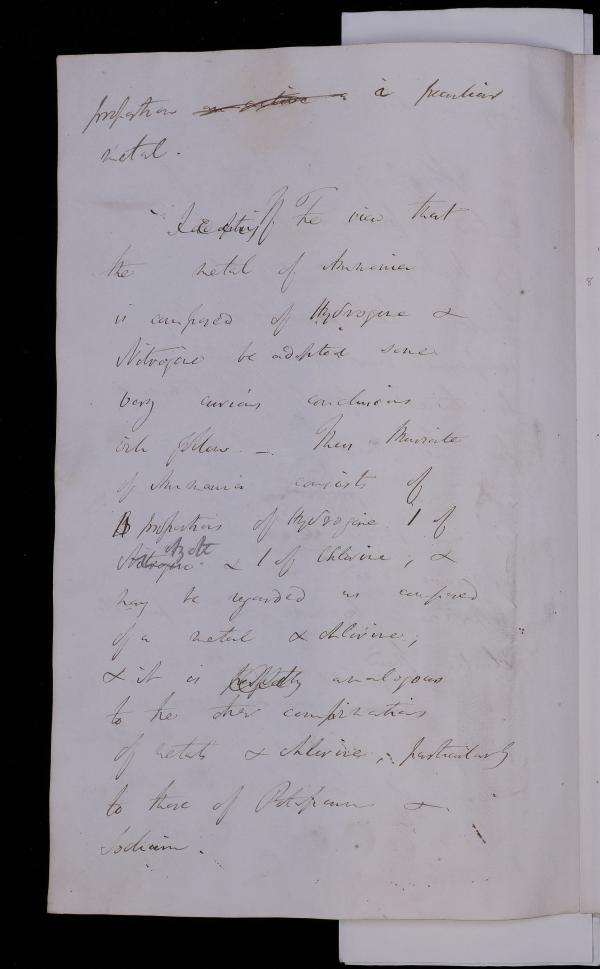 proportion a peculiar
metal.
If the view that
the metal of Ammonia
is composed of Hydrogene &
Nitrogene be adopted some
very curious conclusions
will follow. — Thus Muriate
of Ammonia consists of
proportions of Hydrogene 1 of
Azote & 1 of Chlorine, &
may be regarded as composed
of a metal & chlorine;
& it is analogous
to the other combinations
of metals & chlorine, particularly
to those of Potassium &
Sodium.
8